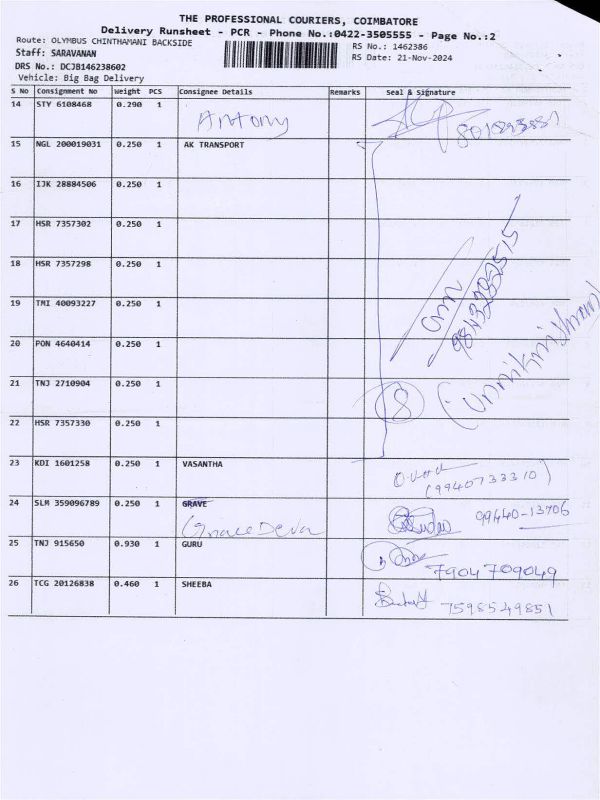 THE PROFESSIONAL COURIERS, COIMBATORE
Delivery Runsheet - PCR - Phone No.:0422-3505555 - Page No.:2
Route: OLYMBUS CHINTHAMANI BACKSIDE
RS No.: 1462386
Staff: SARAVANAN
RS Date: 21-Nov-2024
DRS No.: DCJB146238602
Vehicle: Big Bag Delivery
S No Consignment No Weight PCS Consignee Details Remarks Seal & Signature
14 STY 6108468 0.290 1 Antony
15 NGL 200019031 0.250 1 AK TRANSPORT
16 IJK 28884506 0.250 1
17 HSR 7357302 0.250 1
18 HSR 7357298 0.250 1
19 TMI 40093227 0.250 1
20 PON 4640414 0.250 1
21 TNJ 2710904 0.250 1
8
22 HSR 7357330 0.250 1
23 KDI 1601258 0.250 1 VASANTHA
(9940733310)
24 SLM 359096789 0.250 1 GRAVE 99440-13706
25 TNJ 915650 0.930 1 GURU 7904709049
26 TCG 20126838 0.460 1 SHEEBA 7598549851